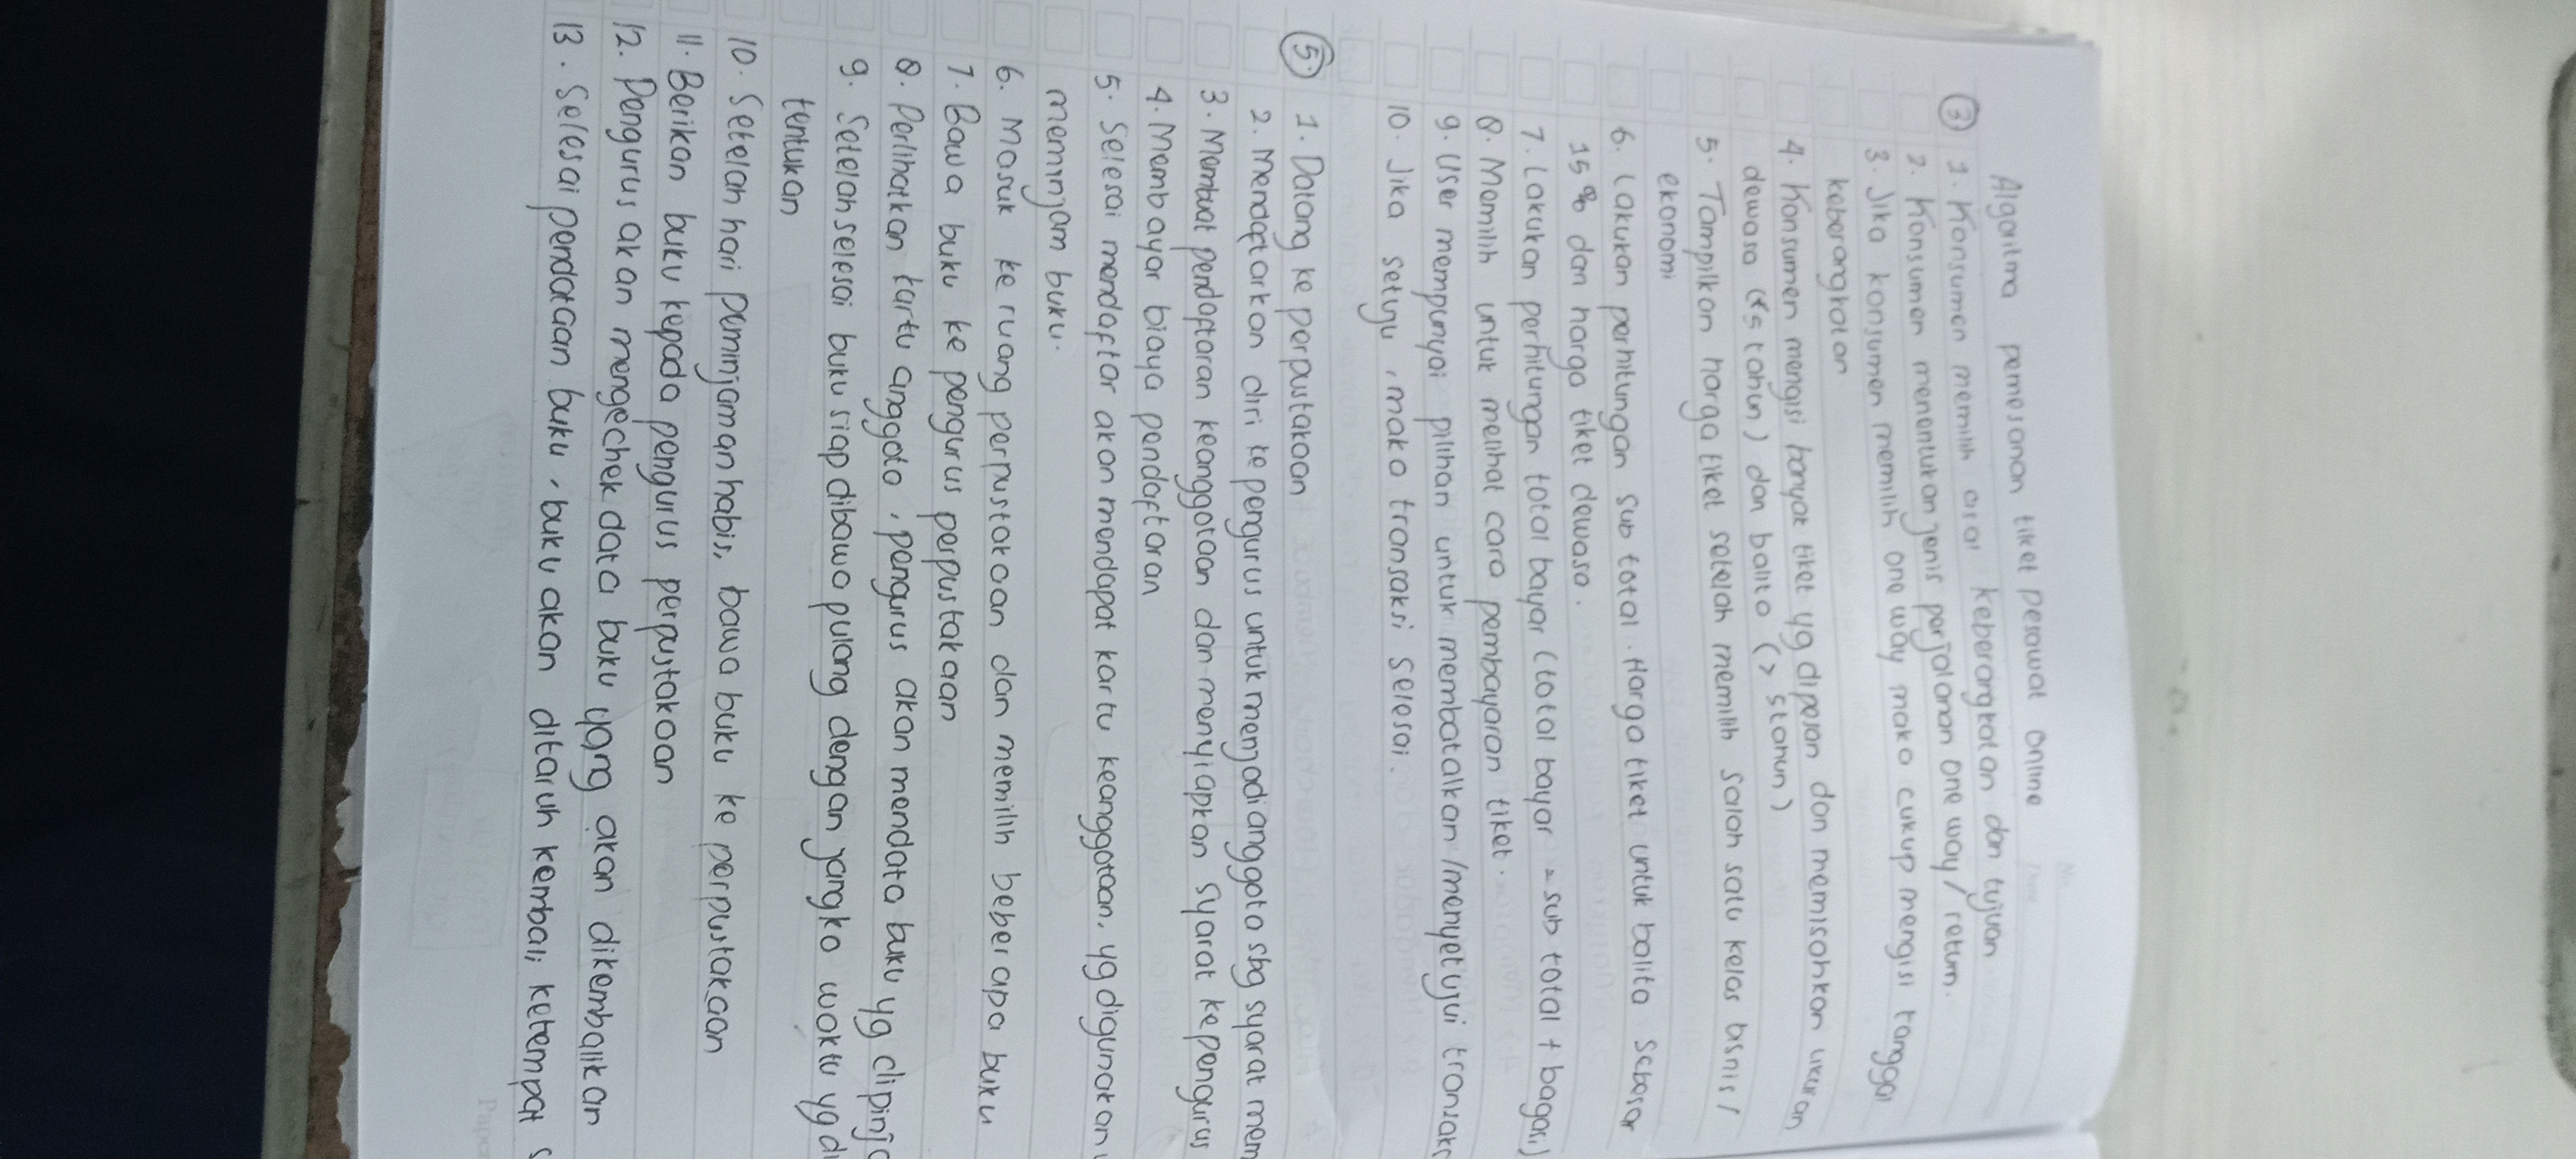 No.
Date
Algoritma pemesanan tiket pesawat online
③ 1. Konsumen memilih asal keberangkatan dan tujuan
2. Konsumen menentukan jenis perjalanan one way / return.
3. Jika konsumen memilih one way maka cukup mengisi tanggal
keberangkatan
4. Konsumen mengisi banyak tiket yg dipesan dan memisahkan ukuran
dewasa (<5 tahun) dan balita (> 5 tahun)
5. Tampilkan harga tiket setelah memilih salah satu kelas bisnis /
ekonomi
6. Lakukan perhitungan sub total. Harga tiket untuk balita sebesar
15% dan harga tiket dewasa.
7. Lakukan perhitungan total bayar (total bayar = sub total + bagasi)
8. Memilih untuk melihat cara pembayaran tiket.
9. User mempunyai pilihan untuk membatalkan /menyetujui transaks
10. Jika setuju, maka transaksi selesai.
⑤ 1. Datang ke perpustakaan
2. Mendaftarkan diri ke pengurus untuk menjadi anggota sbg syarat mem
3. Membuat pendaftaran keanggotaan dan menyiapkan syarat ke pengurus
4. Membayar biaya pendaftaran
5. Selesai mendaftar akan mendapat kartu keanggotaan, yg digunakan
meminjam buku.
6. Masuk ke ruang perpustakaan dan memilih beberapa buku
7. Bawa buku ke pengurus perpustakaan
8. Perlihatkan kartu anggota, pengurus akan mendata buku yg dipinja
9. Setelah selesai buku siap dibawa pulang dengan jangka waktu yg di
tentukan
10. Setelah hari peminjaman habis, bawa buku ke perpustakaan
11. Berikan buku kepada pengurus perpustakaan
12. Pengurus akan mengechek data buku yang akan dikembalikan
13. Selesai pendataan buku, buku akan ditaruh kembali ketempat s
Paper